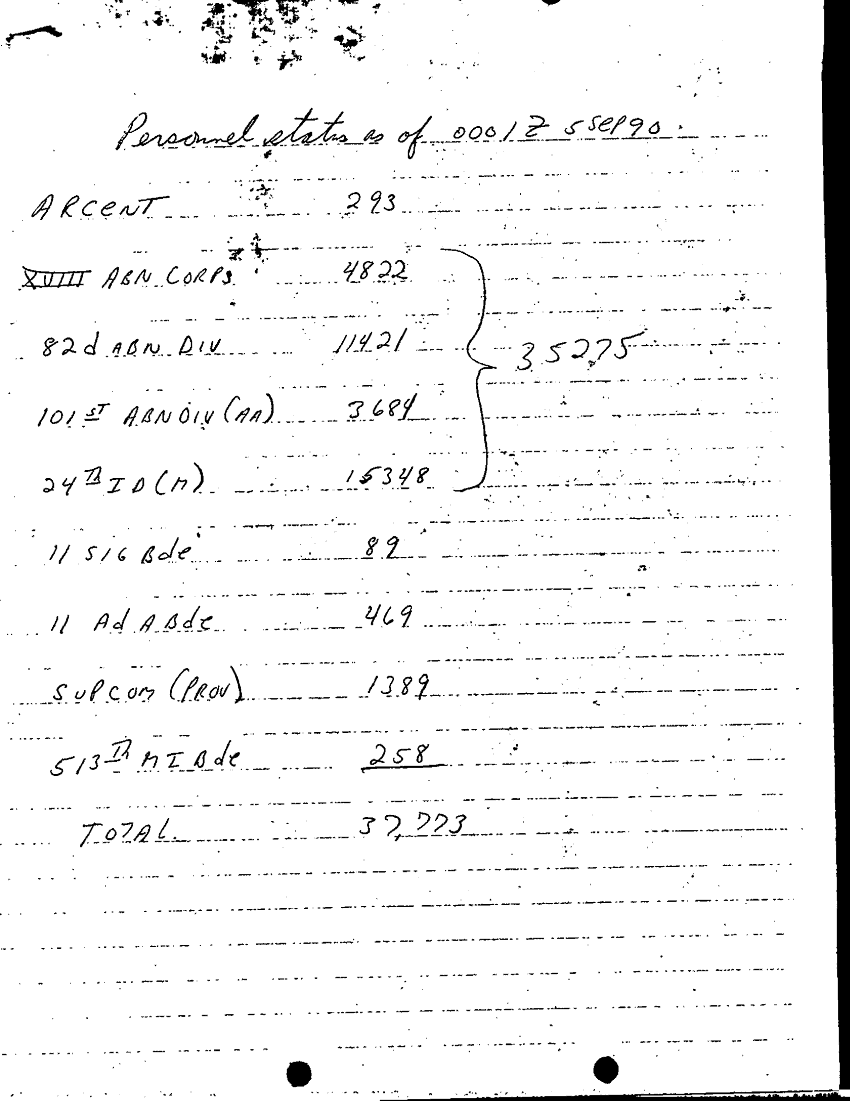 Personnel status as of 0001Z 5 SEP 90.
ARCENT 293
XVIII ABN CORPS 4822
82d ABN DIV 11421 35275
101ST ABN DIV (AA) 3684
24th ID (M) 15348
11 SIG Bde 89
11 Ad A Bde 469
SUPCOM (PROV) 1389
513th MI Bde 258
TOTAL. 37,773